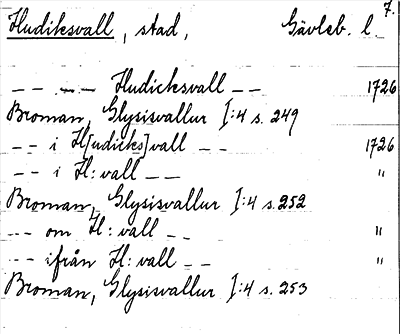 7.
Hudiksvall, stad, Gävleb. l.
-- -- -- Hudicksvall -- -- 1726
Broman, Glysisvallur I:4 s. 249
-- -- i H[udicks]vall -- -- 1726
-- -- i H: vall -- -- "
Broman, Glysisvallur I:4 s. 252
-- -- om H: vall -- -- "
-- -- ifrån H: vall -- -- "
Broman, Glysisvallur I:4 s. 253